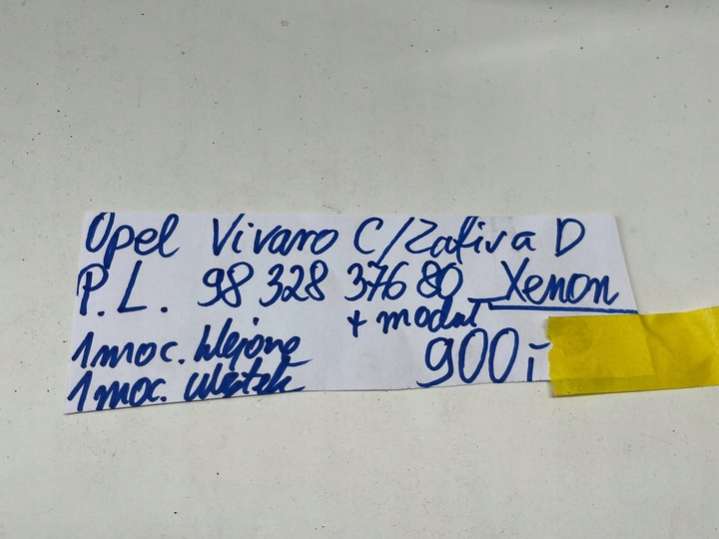 Opel Vivaro C/Zafira D
P.L. 98 328 376 80 Xenon
+ moduł
1 moc. klejone
1 moc.
900,-